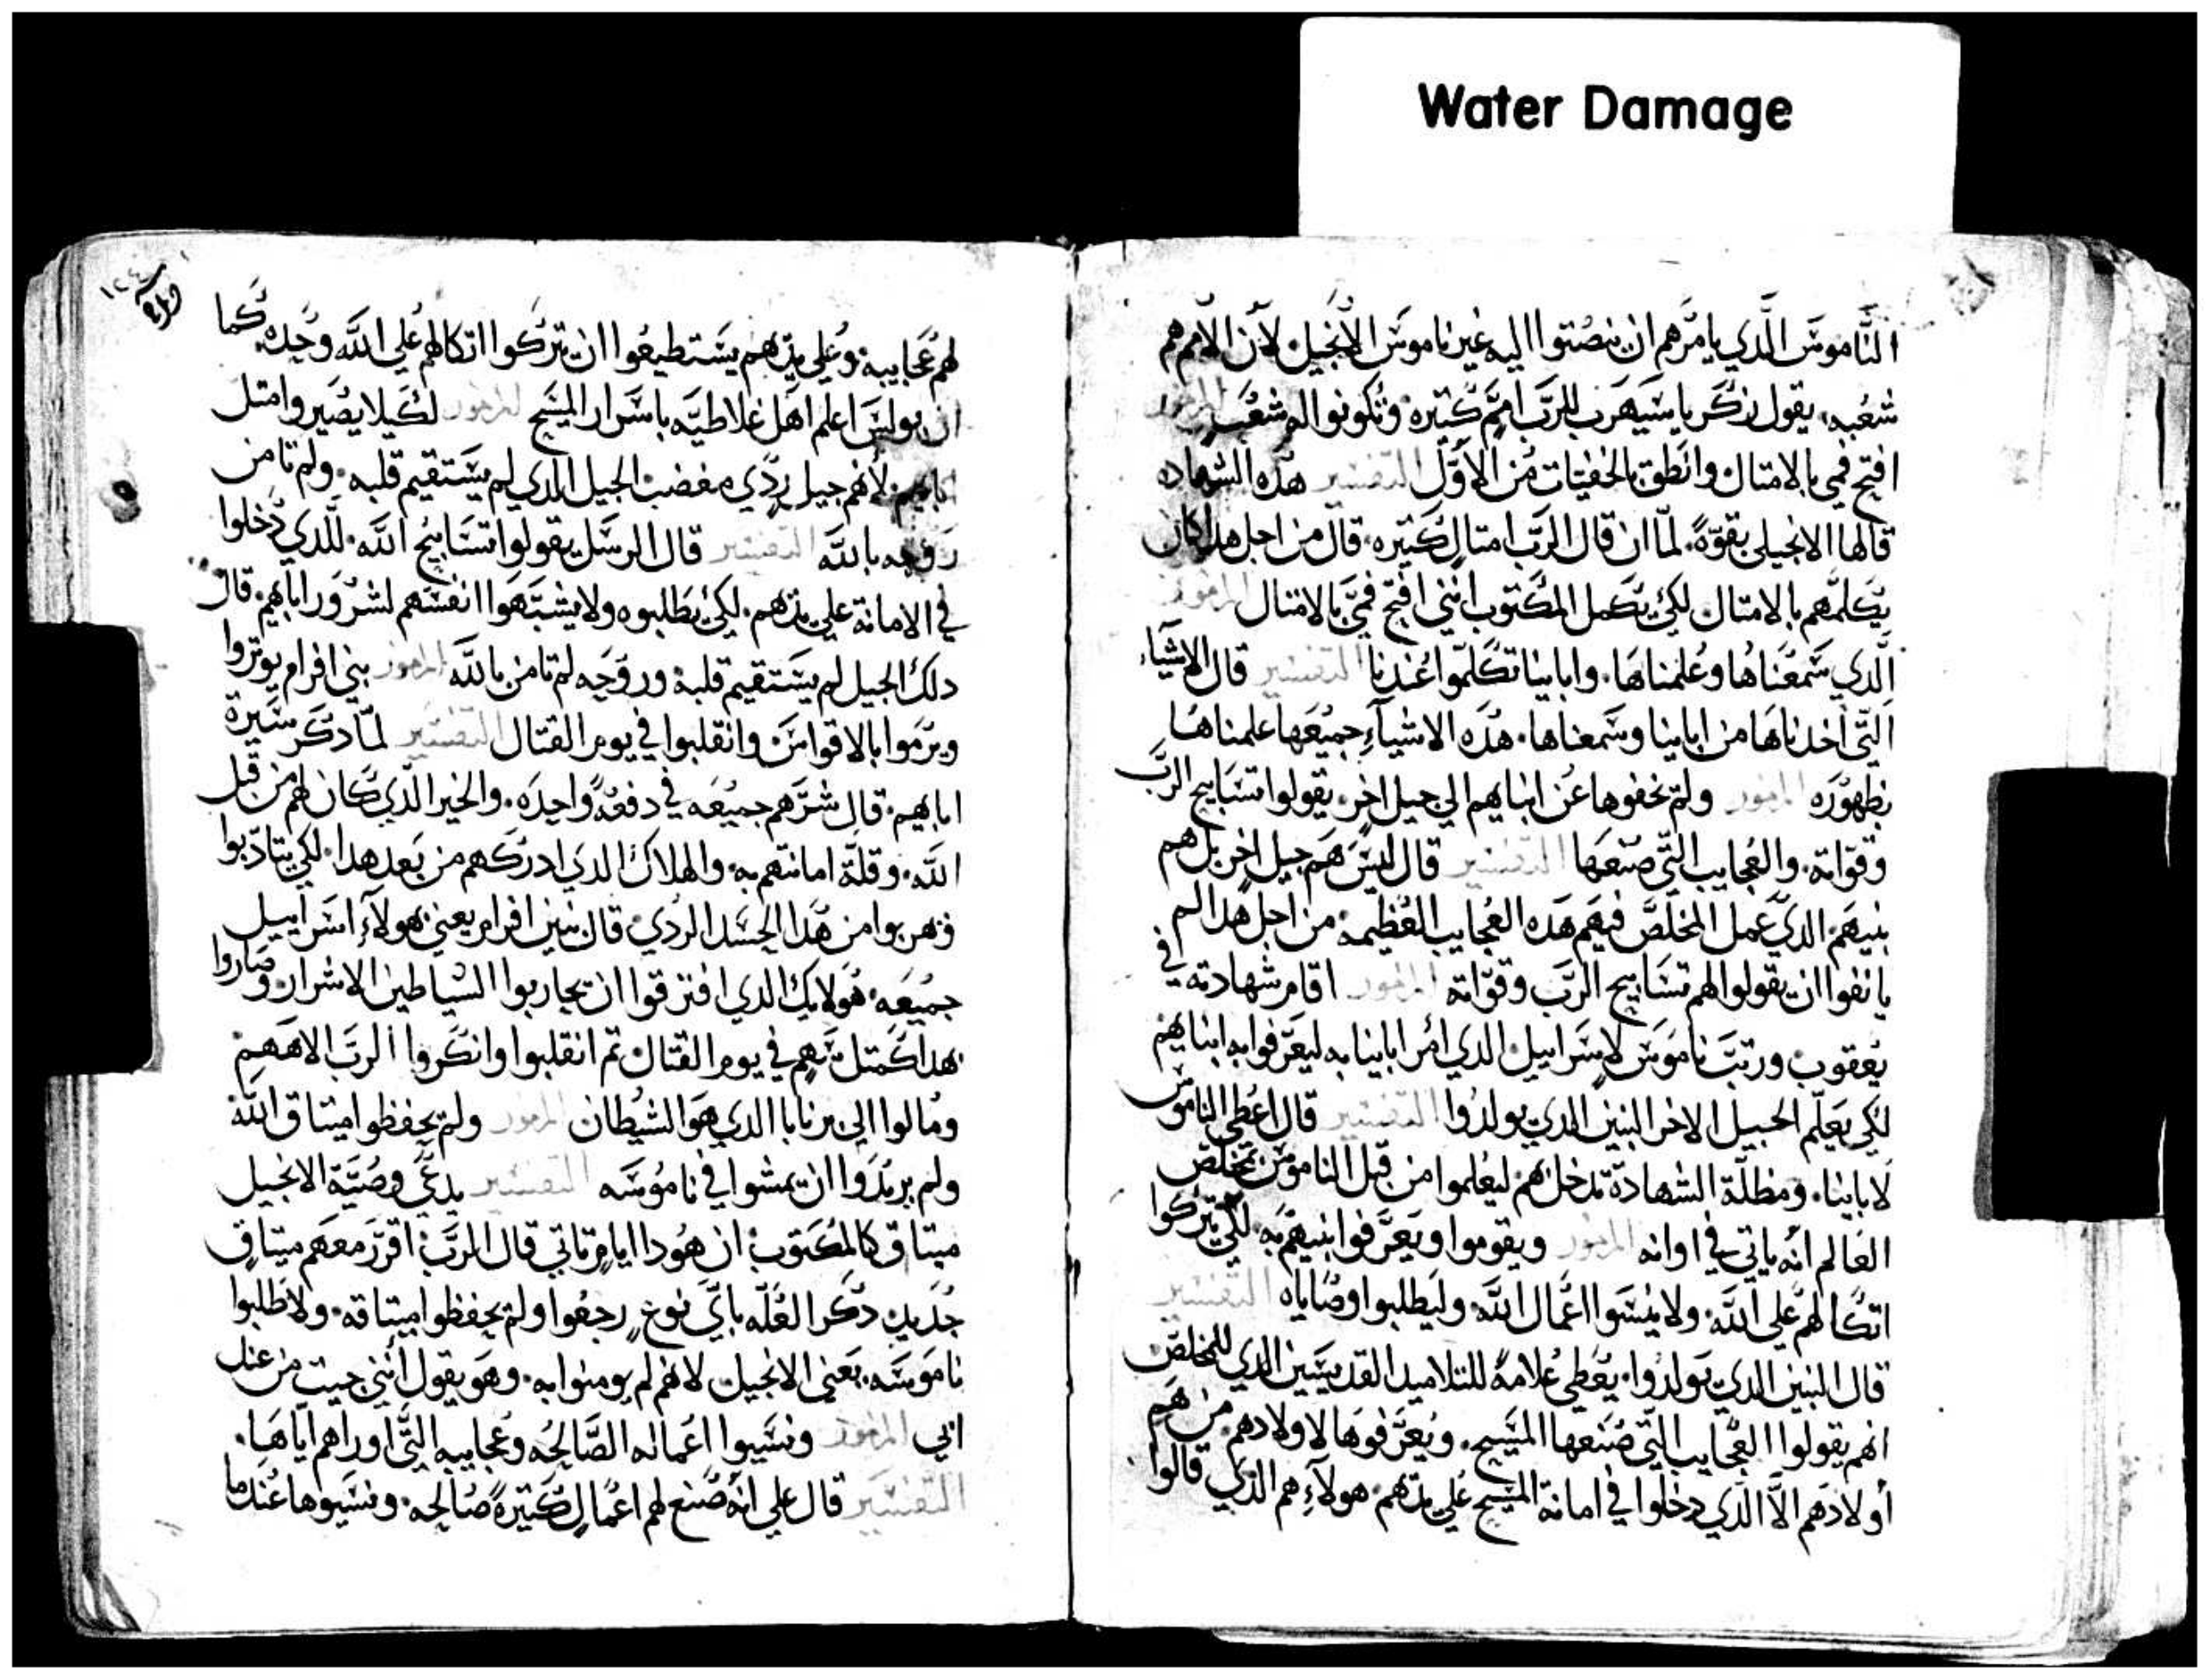 Water Damage
الناموس الذي يامرهم ان ينصتوا اليه غير ناموس الانجيل لان الامم هم
شعبه، يقول زكريا سيهرب للرب امم كثيره وتكونوا له شعب المزمور
افتح فمي بالامتال وانطق بالخفيات من الاول التفسير هده الشهاده
قالها الانجيلي بقوة. لما ان قال الرب امتال كتيره. قال من اجل هدا كان
يكلمهم بالامتال لكي يكمل المكتوب انني افتح فمي بالامتال المزمور
الدي سمعناها وعلمناها. وابايينا تكلموا عندنا التفسير قال الاشياء
التي اخدناها من ابايينا وسمعناها. هده الاشياء جميعها علمناها
بظهوره المزمور ولم تخفوها عن ابنايهم الي جيل اخر. يقولوا تسابيح الرب
وقواته. والعجايب التي صنعها التفسير قال ليس هم جيل اخر بل هم
بنيهم. الدي عمل المخلص فيهم هده العجايب العظيمه. من اجل هدا لم
يانفوا ان يقولوا لهم تسابيح الرب وقواته المزمور اقام شهادته في
يعقوب ورتب ناموس لاسراييل الدي امر ابايينا به ليعرفوا به ابنايهم
لكي يعلم الجيل الاخر البنين الدي يولدوا التفسير قال اعطي الناموس
لابايينا. ومظلة الشهادة تدخلهم ليعلموا من قبل الناموس تخلص
العالم انه ياتي في اوانه المزمور ويقوموا ويعرفوا بنيهم به. لكي يتركوا
اتكالهم علي الله. ولا ينسوا اعمال الله وليطلبوا وصاياه التفسير
قال البنين الدي يولدوا. يعطي علامة للتلاميد القديسين الدي للمخلص
انهم يقولوا العجايب التي صنعها المسيح. ويعرفوها لاولادهم. من هم
أولادهم الا الدي دخلوا في امانة المسيح علي يدهم. هولاء هم الدي قالوا
لهم عجايبه وعلي يدهم يستطيعوا ان يتركوا اتكالهم علي الله وحده كما
ان بولس اعلم اهل غلاطيه باسرار المسيح المزمور لكيلا يصيروا متل
ابايهم. لانهم جيل ردي مغضب الجيل الدي لم يستقيم قلبه. ولم تامن
روحه بالله التفسير قال الرسل يقولوا تسابيح الله. للدي دخلوا
في الامانة علي يدهم. لكي يطلبوه ولا يشبهوا انفسهم لشرور ابايهم. قال
دلك الجيل لم يستقيم قلبه وروحه لم تامن بالله المزمور بني افرام يوتروا
ويرموا بالاقواس وانقلبوا في يوم القتال التفسير لما دكر سيرة
ابايهم. قال شرهم جميعه في دفعة واحده. والخير الدي كان لهم من قبل
الله. وقلة امانتهم به. والهلاك الدي ادركهم من بعد هدا. لكي يتادبوا
فهربوا من هدا الحسد الردي. قال بنين افرام يعني هولاء اسراييل
جميعه. هولايك الدي افترقوا ان يحاربوا الشياطين الاشرار وصاروا
هدا كمتل سهم في يوم القتال تم انقلبوا وانكروا الرب الاههم
ومالوا الي برنابا الدي هو الشيطان المزمور ولم يحفظوا ميتاق الله
ولم يريدوا ان يمشوا في ناموسه التفسير يدعي وصية الانجيل
ميتاق كالمكتوب ان هودا ايام تاتي قال الرب اقرر معهم ميتاق
جديد دكر العله باي نوع رجعوا ولم يحفظوا ميتاقه. ولا طلبوا
ناموسه. يعني الانجيل لانهم لم يومنوا به. وهو يقول انني جيت من عند
ابي المزمور ونسيوا اعماله الصالحه وعجايبه التي اوراهم اياها.
التفسير قال علي انه صنع لهم اعمال كتيرة صالحه. ونسيوها عندما